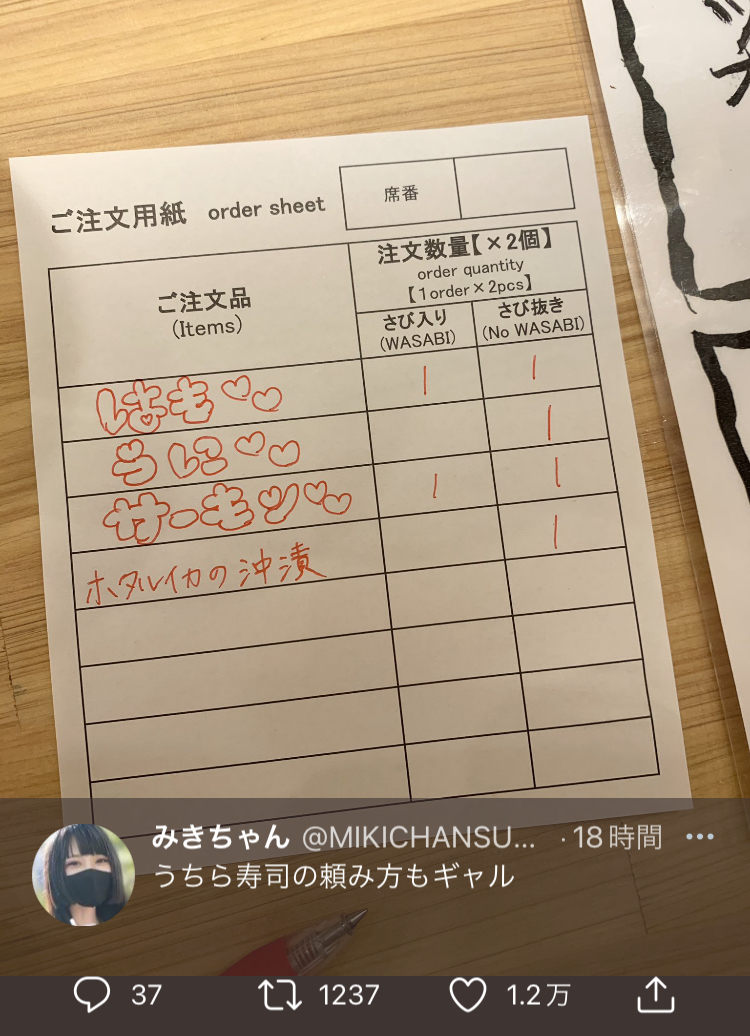 ご注文用紙 order sheet
席番
ご注文品
(Items)
注文数量【×2個】
order quantity
【1order×2pcs】
さび入り
(WASABI)
さび抜き
(No WASABI)
はも♡♡ 1 1
うに♡♡ 1
サーモン♡♡ 1 1
ホタルイカの沖漬 1
みきちゃん @MIKICHANSU... ·18時間
うちら寿司の頼み方もギャル
37 1237 1.2万